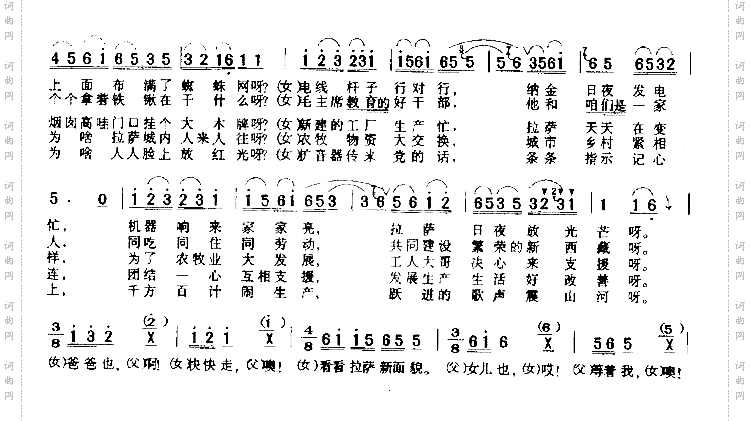 4 5 6 i 6 5 3 5 3 2 1 6 1 1 i 2 3 2 3 i i 5 6 i 6 5 5 5 6 3 5 6 i 6 5 6 5 3 2
上 面 布 满 了 蜘 蛛 网 呀？(女)电 线 杆 子 行 对 行， 纳 金 日 夜 发 电
个 个 拿 着 铁 锹 在 干 什 么？(女)毛 主 席 教 育 的 好 干 部， 他 和 咱 们 是 一 家
烟 囱 高 哇 门 口 挂 个 大 木 牌 呀？(女)新 建 的 工 厂 生 产 忙， 拉 萨 天 天 在 变
为 啥 拉 萨 城 内 人 来 人 往 呀？(女)农 牧 物 资 大 交 换， 城 市 乡 村 紧 相
为 啥 人 人 脸 上 放 红 光 呀？(女)扩 音 器 传 来 党 的 话， 条 条 指 示 记 心
5 · 0 i 2 3 2 3 1 6 5 3 3 6 5 6 1 2 6 5 3 5 3 2 3 1 1 1 6
忙， 机 器 响 来 家 家 亮， 拉 萨 日 夜 放 光 芒 呀。
人， 同 吃 同 住 同 劳 动， 共 同 建 设 繁 荣 的 新 西 藏 呀。
样， 为 了 农 牧 业 大 发 展， 工 人 大 哥 决 心 来 支 援 呀。
连， 团 结 一 心 互 相 支 援， 发 展 生 产 生 活 好 改 善 呀。
上， 千 方 百 计 闹 生 产， 跃 进 的 歌 声 震 山 河 呀。
3/8 i 3 2 (2) X 2 3 2 (i) X 4/8 6 i i 5 6 5 5 3/8 6 i 6 (6) X 5 6 5 (5) X
(女)爸 爸 也，(父)啊！(女)快 快 走，(父)噢！(女)看 看 拉 萨 新 面 貌。(父)女 儿 也，(女)哎！(父)等 着 我，(女)噢！
词曲网